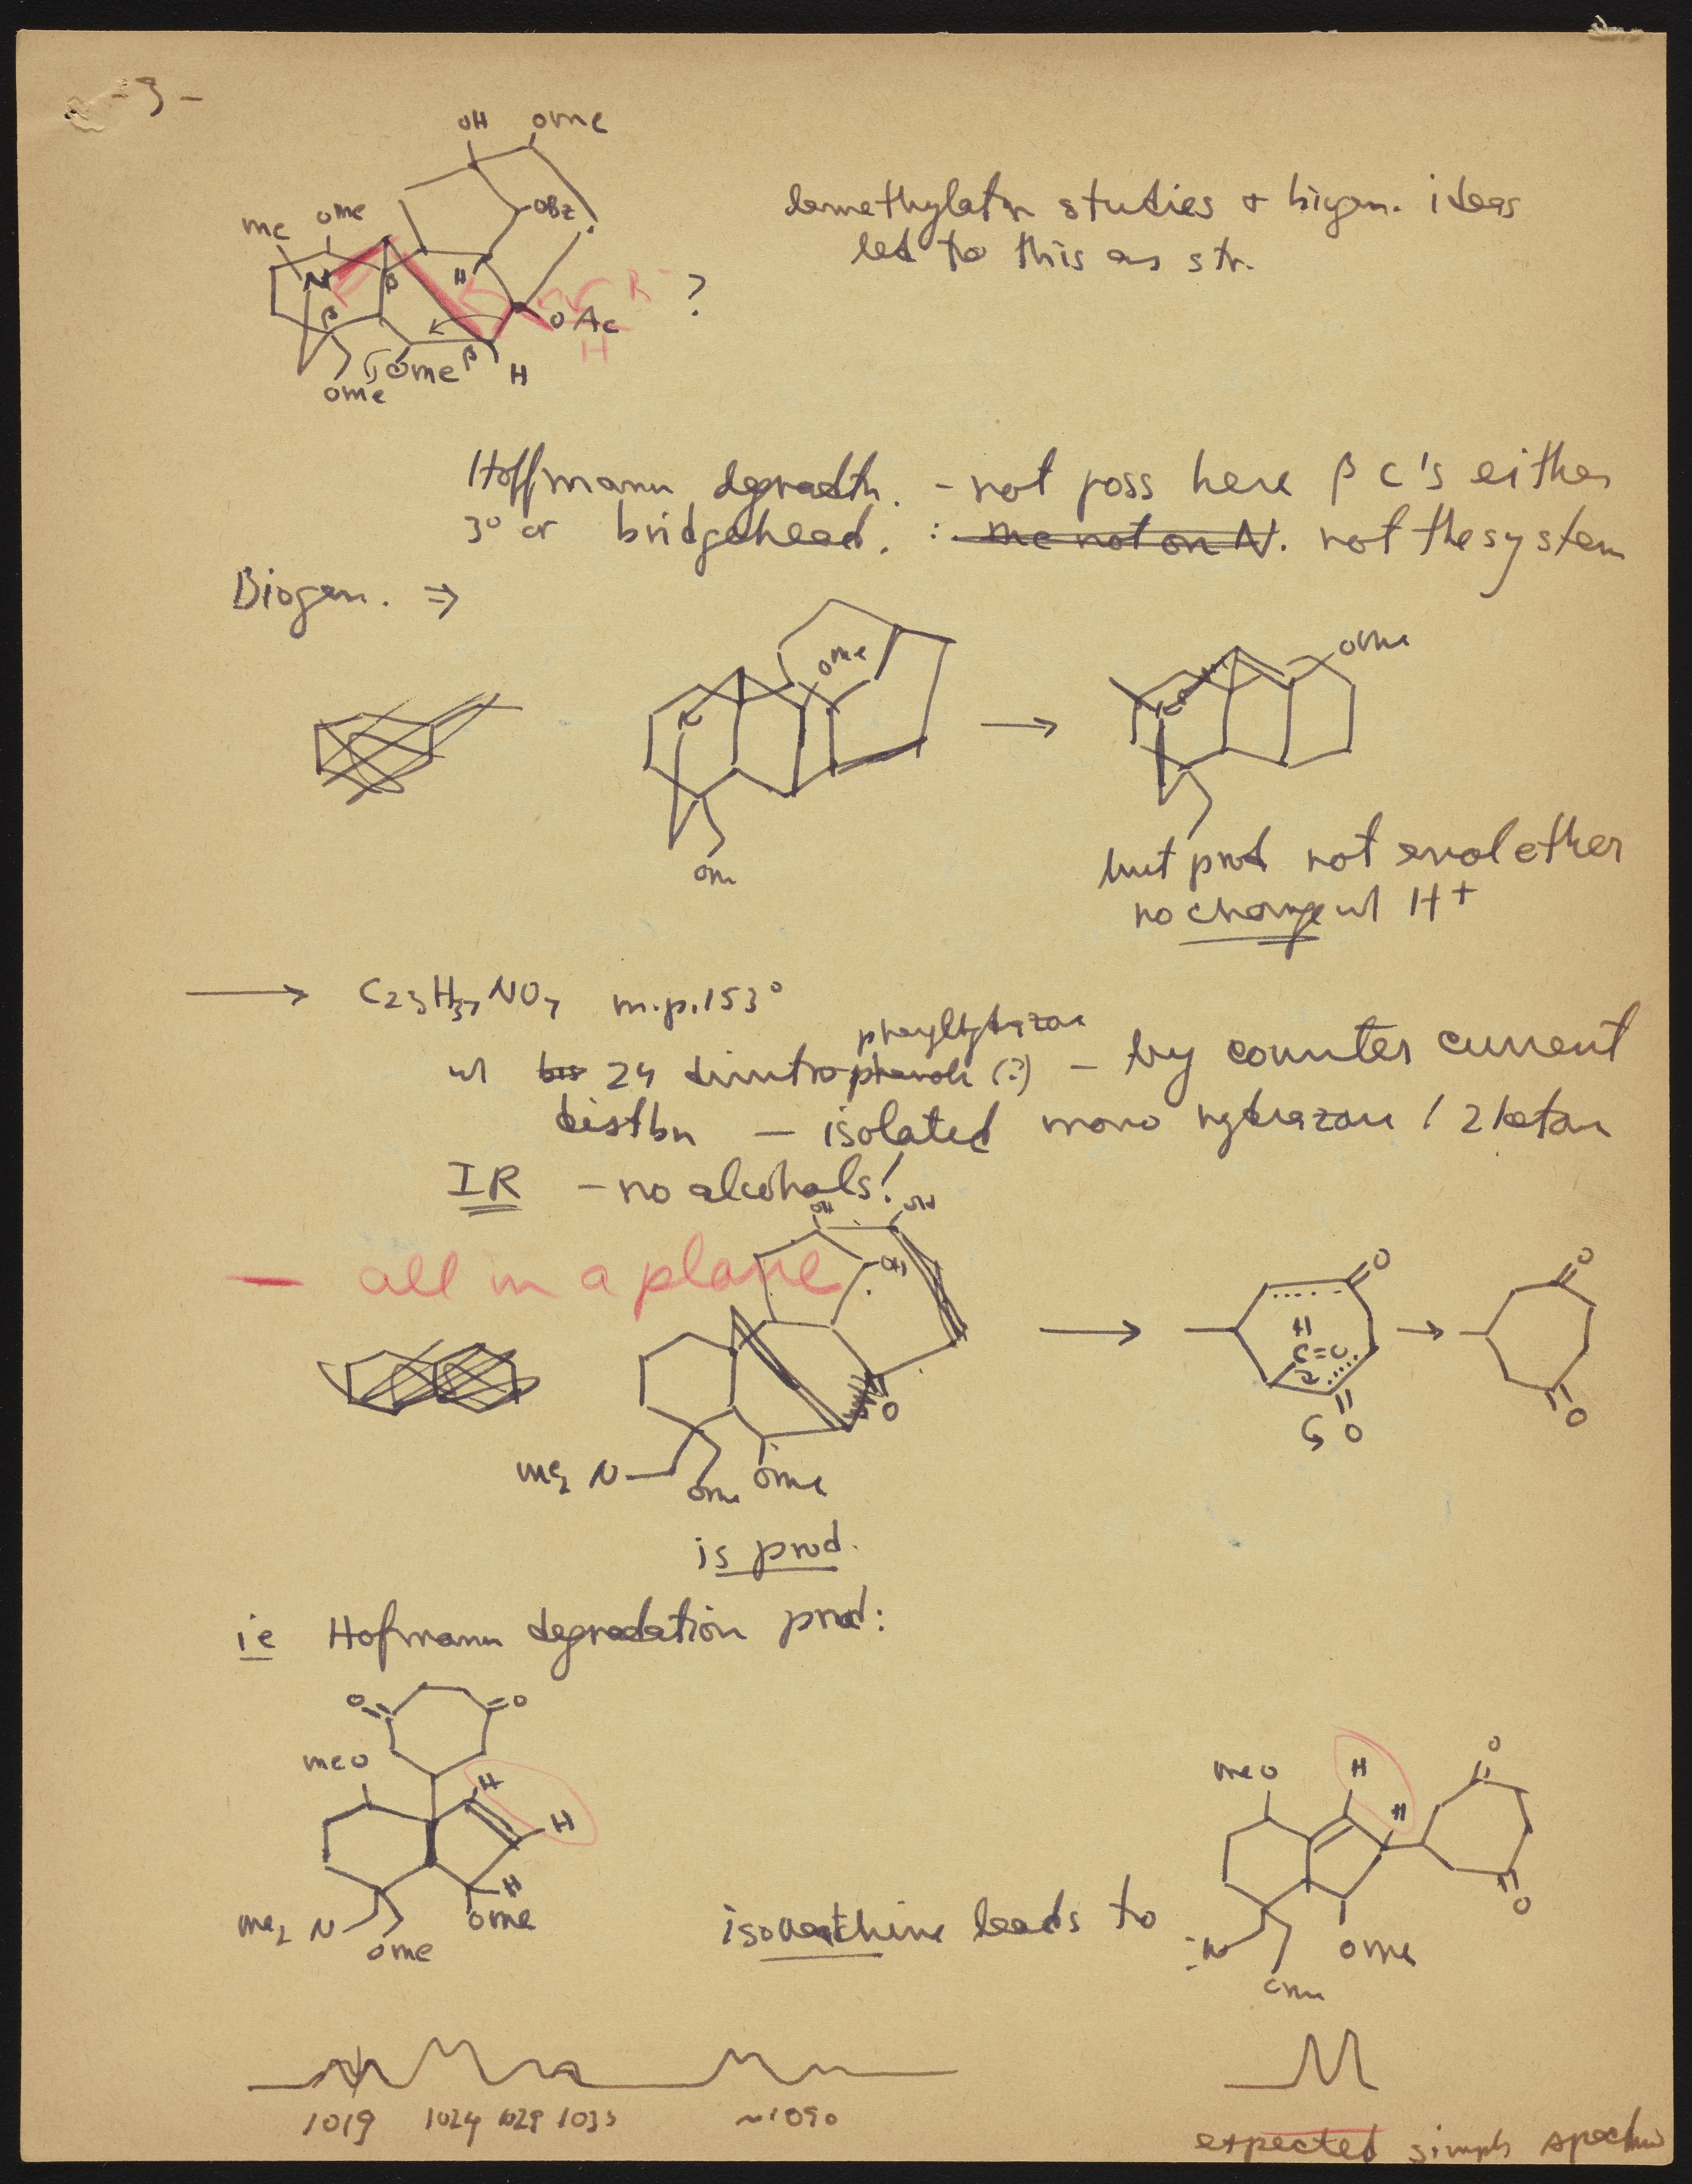 - 3 -
OH OMe
Me OMe OBz
N β H or R
β OAc ?
H
OMe β H
OMe
demethylatn studies + biogen. ideas
led to this as str.
Hoffmann degradtn. - not poss here β C's either
3° or bridgehead. : Me not on N. not the system
Biogen. ⇒
OMe
N
OM
→
OMe
N
but prod not enol ether
no change w/ H+
→ C23H37NO7 m.p. 153°
phenylhydrazone
w/ bis 24 dinitrophenol (?) - by counter current
distbn - isolated mono hydrazone / 2 ketone
IR - no alcohols!
OH OH
- all in a plane OH
O
Me2 N OMe OMe
→
O
H
C=O
2
O
→
O
O
is prod.
ie Hofmann degradation prod:
O O
MeO H
H
H
Me2 N OMe
OMe
isooxathine leads to
MeO H O
H
O
:N OMe
OMe
1019 1024 1029 1035 ~1090
expected simple spectrum